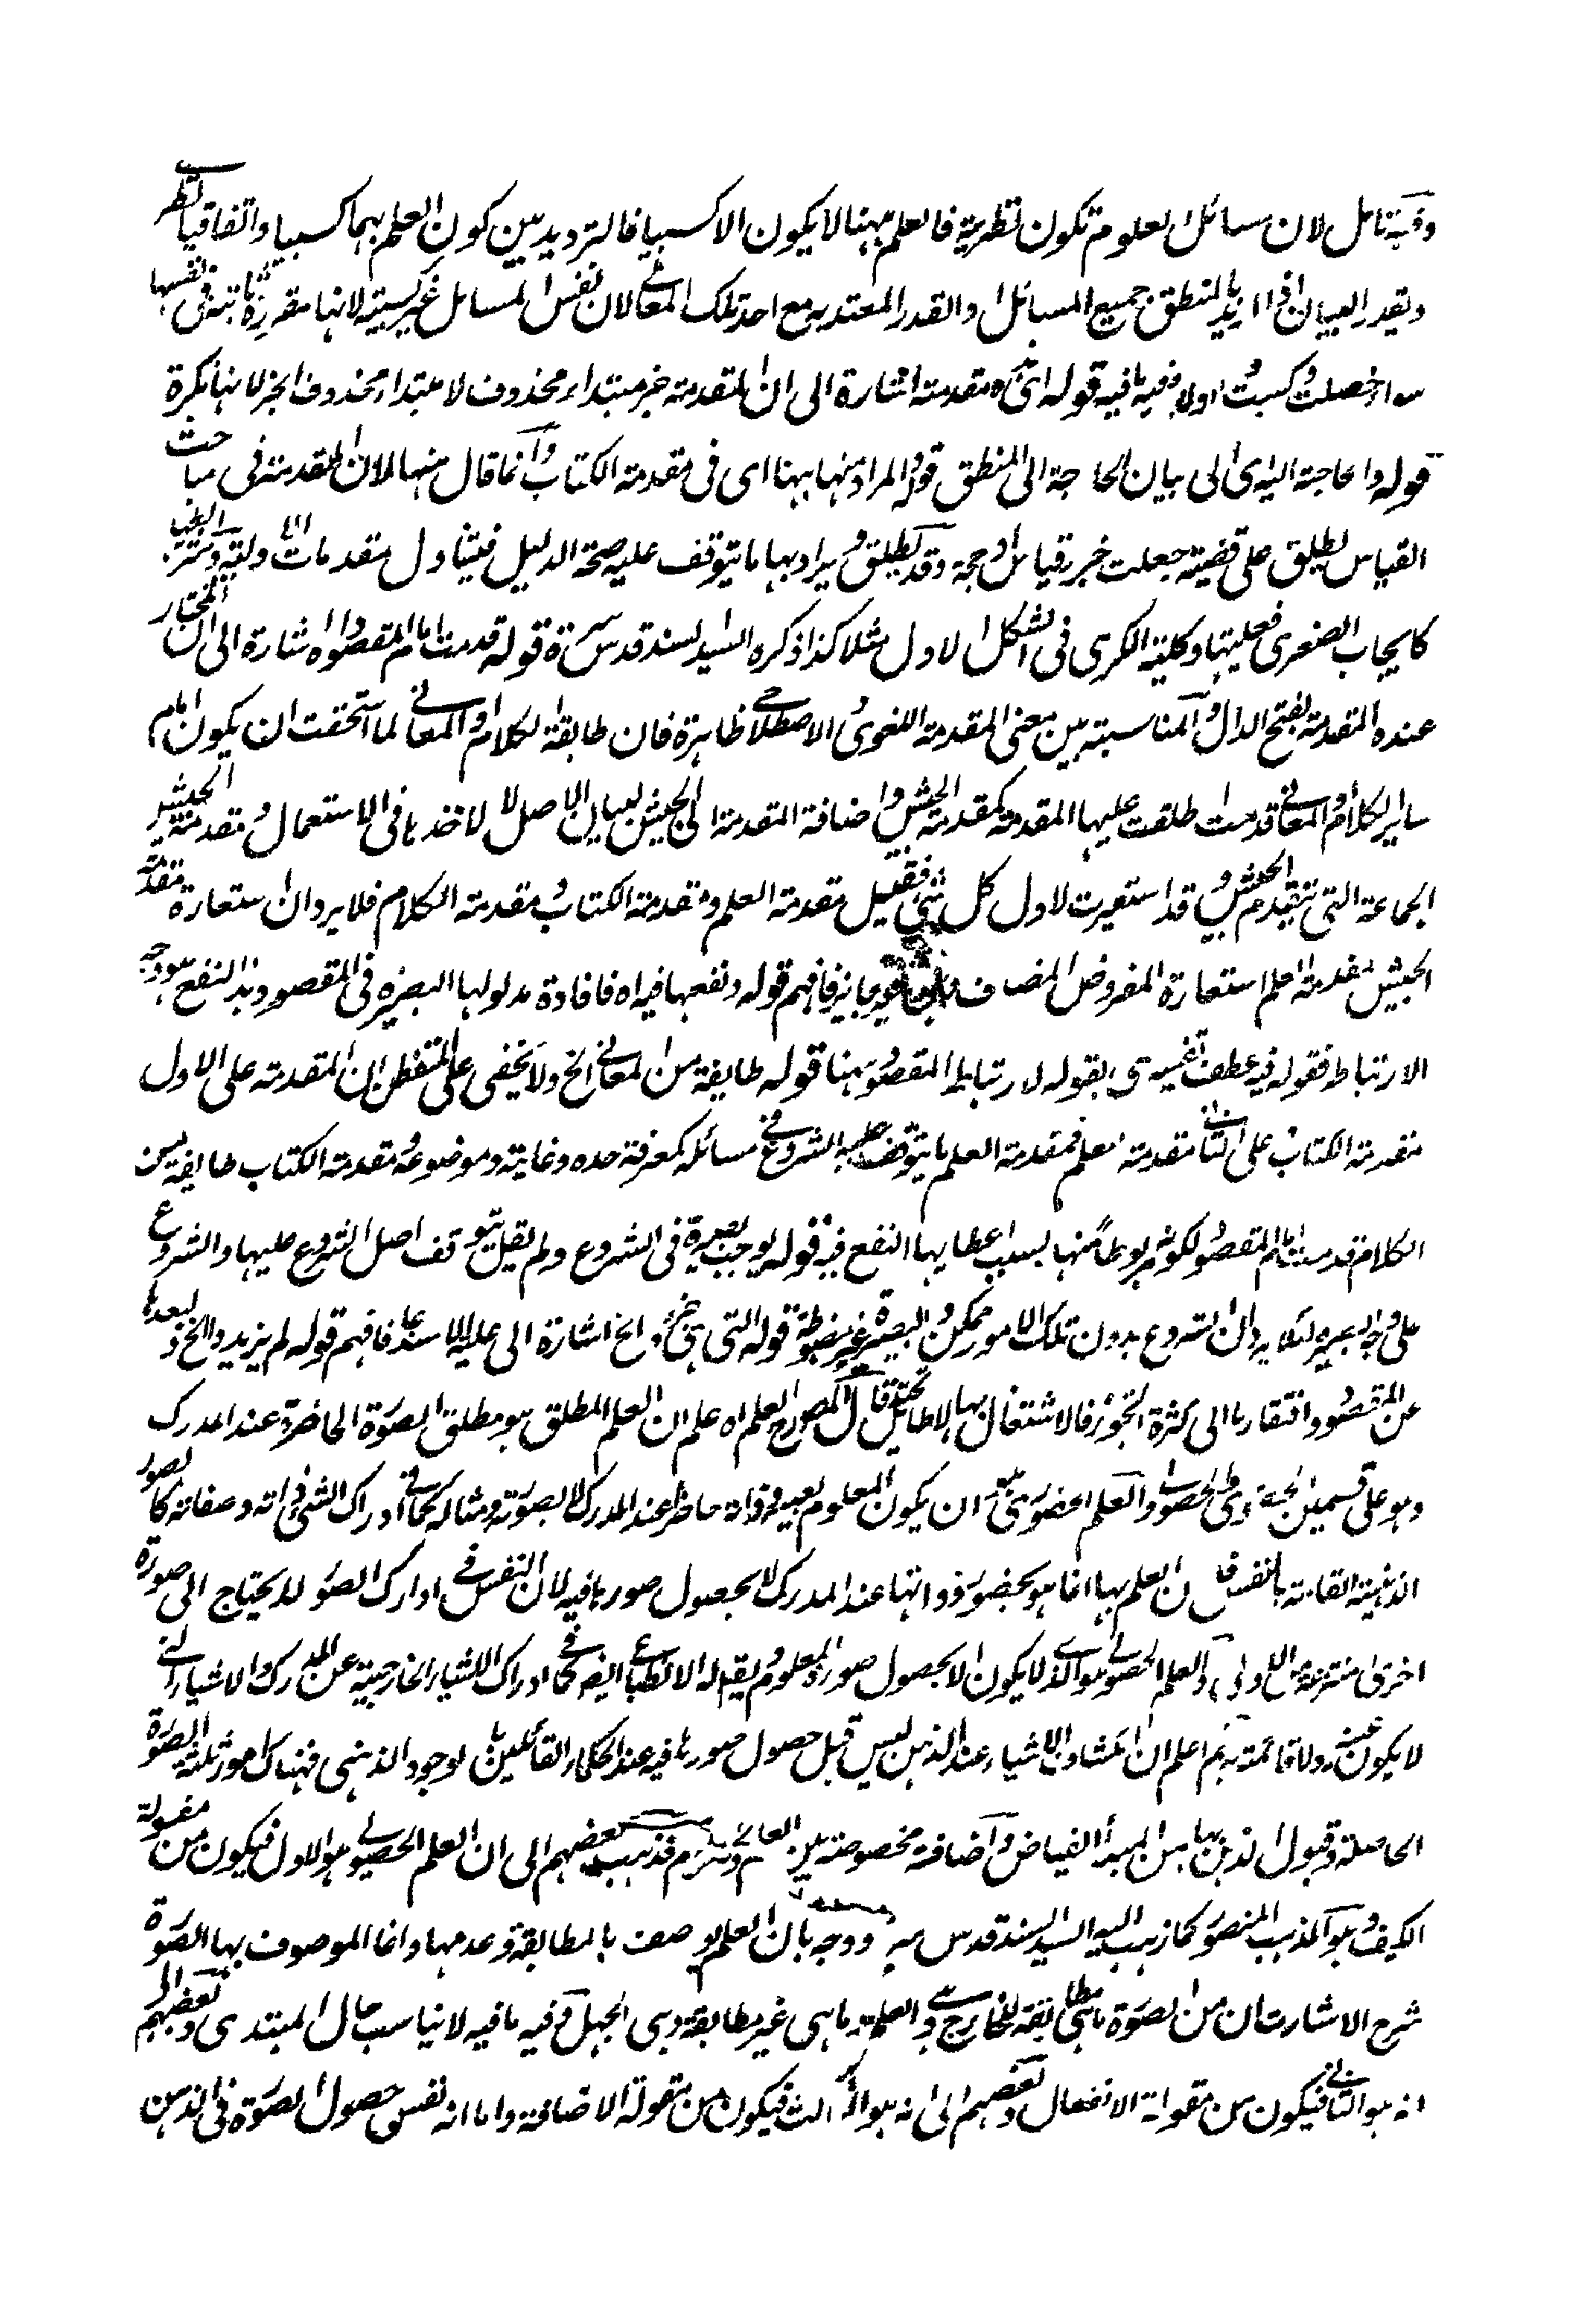 وفيه تامل لان مسائل العلوم تكون نظرية فالعلم بهنا لا يكون الا كسبيا فالترديد بين كون العلم بهما كسبيا واتفاقيا
ويقدر البيان اذا اريد بالمنطق جميع المسائل او القدر المعتد به مع احد تلك المعاني لان نفس المسائل غير كسبية لانها مقررة ثابتة في نفسها
سواء حصلت وكسبت اولا ففيه ما فيه قوله اى هذه مقدمة اشارة الى ان المقدمة خبر مبتداء محذوف لا مبتداء محذوف الخبر لانها نكرة
قوله والحاجة اليه اى الى بيان الحاجة الى المنطق قوله والمراد منها ههنا اى فى مقدمة الكتاب وانما قال ههنا لان المقدمة فى مباحث
القياس تطلق على قضية جعلت جزء قياس او حجة وقد تطلق ويراد بها ما يتوقف عليه صحة الدليل فيتناول مقدمات الادلة وشرائطها
كايجاب الصغرى وفعليتها وكلية الكبرى فى الشكل الاول مثلا كذا ذكره السيد السند قدس سره قوله قدمت امام المقصود اه اشارة الى ان المختار
عنده المقدمة بفتح الدال والمناسبة بين معنى المقدمة اللغوى والاصطلاحى ظاهرة فان طائفة الكلام او المعانى لما استحقت ان يكون امام
ساير الكلام او المعانى قدمت اطلقت عليها المقدمة كمقدمة الجيش واضافة المقدمة الى الجيش لبيان الاصل لا لاخذها فى الاستعمال ومقدمة الجيش
الجماعة التى تتقدم الجيش وقد استعيرت لاول كل شئ فقيل مقدمة العلم ومقدمة الكتاب ومقدمة الكلام فلا يرد ان استعارة مقدمة
الجيش لمقدمة العلم استعارة المفروض المضاف فافهم قوله ونفعها فيه اه فافادة مدلولها البصيرة فى المقصود وهذا النفع هو وجه
الارتباط فقوله فيه عطف تفسيرى لقوله لارتباط المقصود بهنا قوله طايفة من المعانى الخ ولا يخفى على المتفطن ان المقدمة على الاول
مقدمة الكتاب وعلى الثانى مقدمة العلم فمقدمة العلم ما يتوقف عليه الشروع فى مسائله كمعرفة حده وغايته وموضوعه ومقدمة الكتاب طايفة من
الكلام قدمت امام المقصود لكونه مربوطا منها بسبب اعطايها النفع فيه قوله يوجب بصيرة فى الشروع ولم يقل يتوقف اصل الشروع عليها والشروع
على وجه البصيرة لئلا يرد ان الشروع بدون تلك الامور ممكن والبصيرة غير مضبوطة قوله التى هى جزء الخ اشارة الى علاقة الاستناد فافهم قوله لم يزيد والخ وبعدها
عن المقصود وافتقارها الى كثرة التجوز فالاشتغال بها بلا طائل تحته قال المصرح العلم اه اعلم ان العلم المطلق هو مطلق الصورة الحاضرة عند المدرك
وهو على قسمين الحضورى والحصولى والعلم الحضورى ان يكون المعلوم بعينه وذاته حاضرا عند المدرك لا بصورته ومثاله كما فى ادراك الشئ ذاته وصفاته كالصور
الذهنية القائمة بالنفس فان العلم بها انما هو بحضور ذواتها عند المدرك لا بحصول صورها فيه لان النفس فى ادراك الصور لا يحتاج الى صورة
اخرى منتزعة من الاولى والعلم الحصولى هو الذى لا يكون الا بحصول صورة المعلوم ويقال له الانطباعى ايضا كما فى ادراك الاشياء الخارجية عن المدرك والاشياء التى
لا يكون عينه ولا قائمة به ثم اعلم ان المشاءين الاشياء عند الذهن ليس قبل حصول صورها فيه عند الحكماء القائلين بالوجود الذهنى فهناك امور ثلثة الصورة
الحاصلة وقبول الذهن بها من المبدأ الفياض واضافة مخصوصة بين العالم والمعلوم فذهب بعضهم الى ان العلم الحصولى هو الاول فيكون من مقولة
الكيف وهو المذهب المنصور كما ذهب اليه السيد السند قدس سره ووجه بان العلم يوصف بالمطابقة وعدمها وانما الموصوف بها الصورة
شرح الاشارات ان من الصورة ما هى مطابقة للخارج وهى العلم وما هى غير مطابقة وهى الجهل وفيه ما فيه لا يناسب حال المبتدى وبعضهم الى
انه هو الثانى فيكون من مقولة الانفعال وبعضهم الى انه هو الثالث فيكون من مقولة الاضافة واما انه نفس حصول الصورة فى الذهن